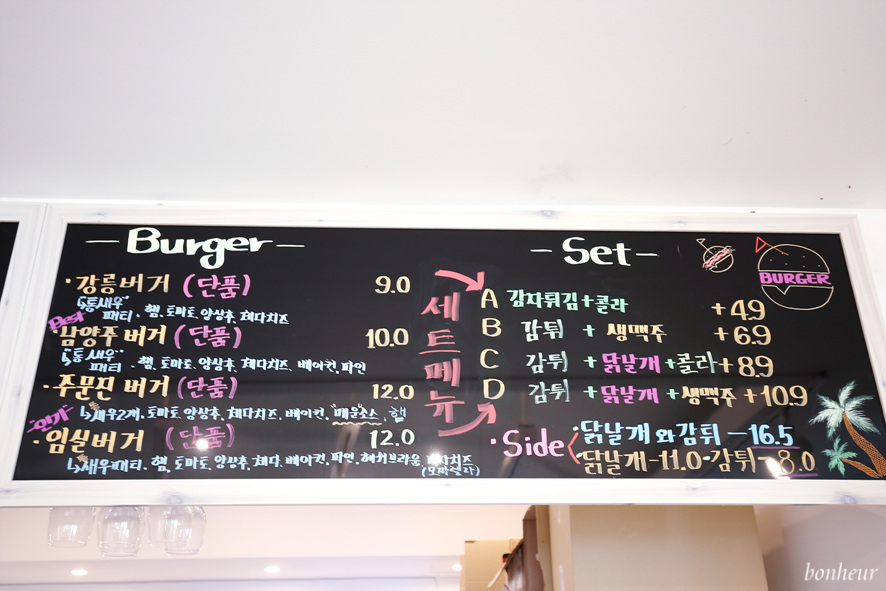 - Burger -
· 강릉버거 (단품) 9.0
↳ "통새우" 패티, 햄, 토마토, 양상추, 체다치즈
Best
· 남양주 버거 (단품) 10.0
↳ "통새우" 패티, 햄, 토마토, 양상추, 체다치즈, 베이컨, 파인
· 주문진 버거 (단품) 12.0
↳ 새우2개, 토마토, 양상추, 체다치즈, 베이컨, "매운소스", 햄
인기
· 임실버거 (단품) 12.0
↳ 새우패티, 햄, 토마토, 양상추, 체다, 베이컨, 파인, 해쉬브라운, 치즈
(모짜렐라)
세트메뉴
- Set -
A 감자튀김+콜라 +4.9
B 감튀 + 생맥주 +6.9
C 감튀 + 닭날개 +콜라 +8.9
D 감튀 + 닭날개 +생맥주 +10.9
· Side < · 닭날개와감튀 - 16.5
· 닭날개 - 11.0 · 감튀 - 8.0
BURGER
bonheur